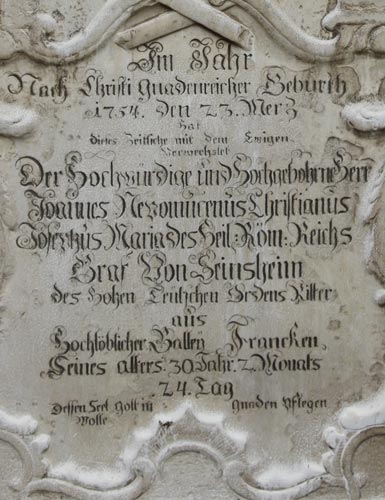 Im Jahr
Nach Christi gnadenreicher Geburth
1754. den 23. Merz
hat
dieses Zeitliche mit dem Ewigen
Verwechslet
Der Hochwürdige und Hochgebohrne Herr
Joannes Nepomucenus Christianus
Josephus Maria des Heil: Röm: Reichs
Graf Von Seinsheim
des hohen Teutschen Ordens Ritter
aus
Hochlöblicher Balley Francken,
Seines alters 30 Jahr. 2 Monats
24. Tag
Dessen Seel Gott in gnaden Pflegen
Wolle